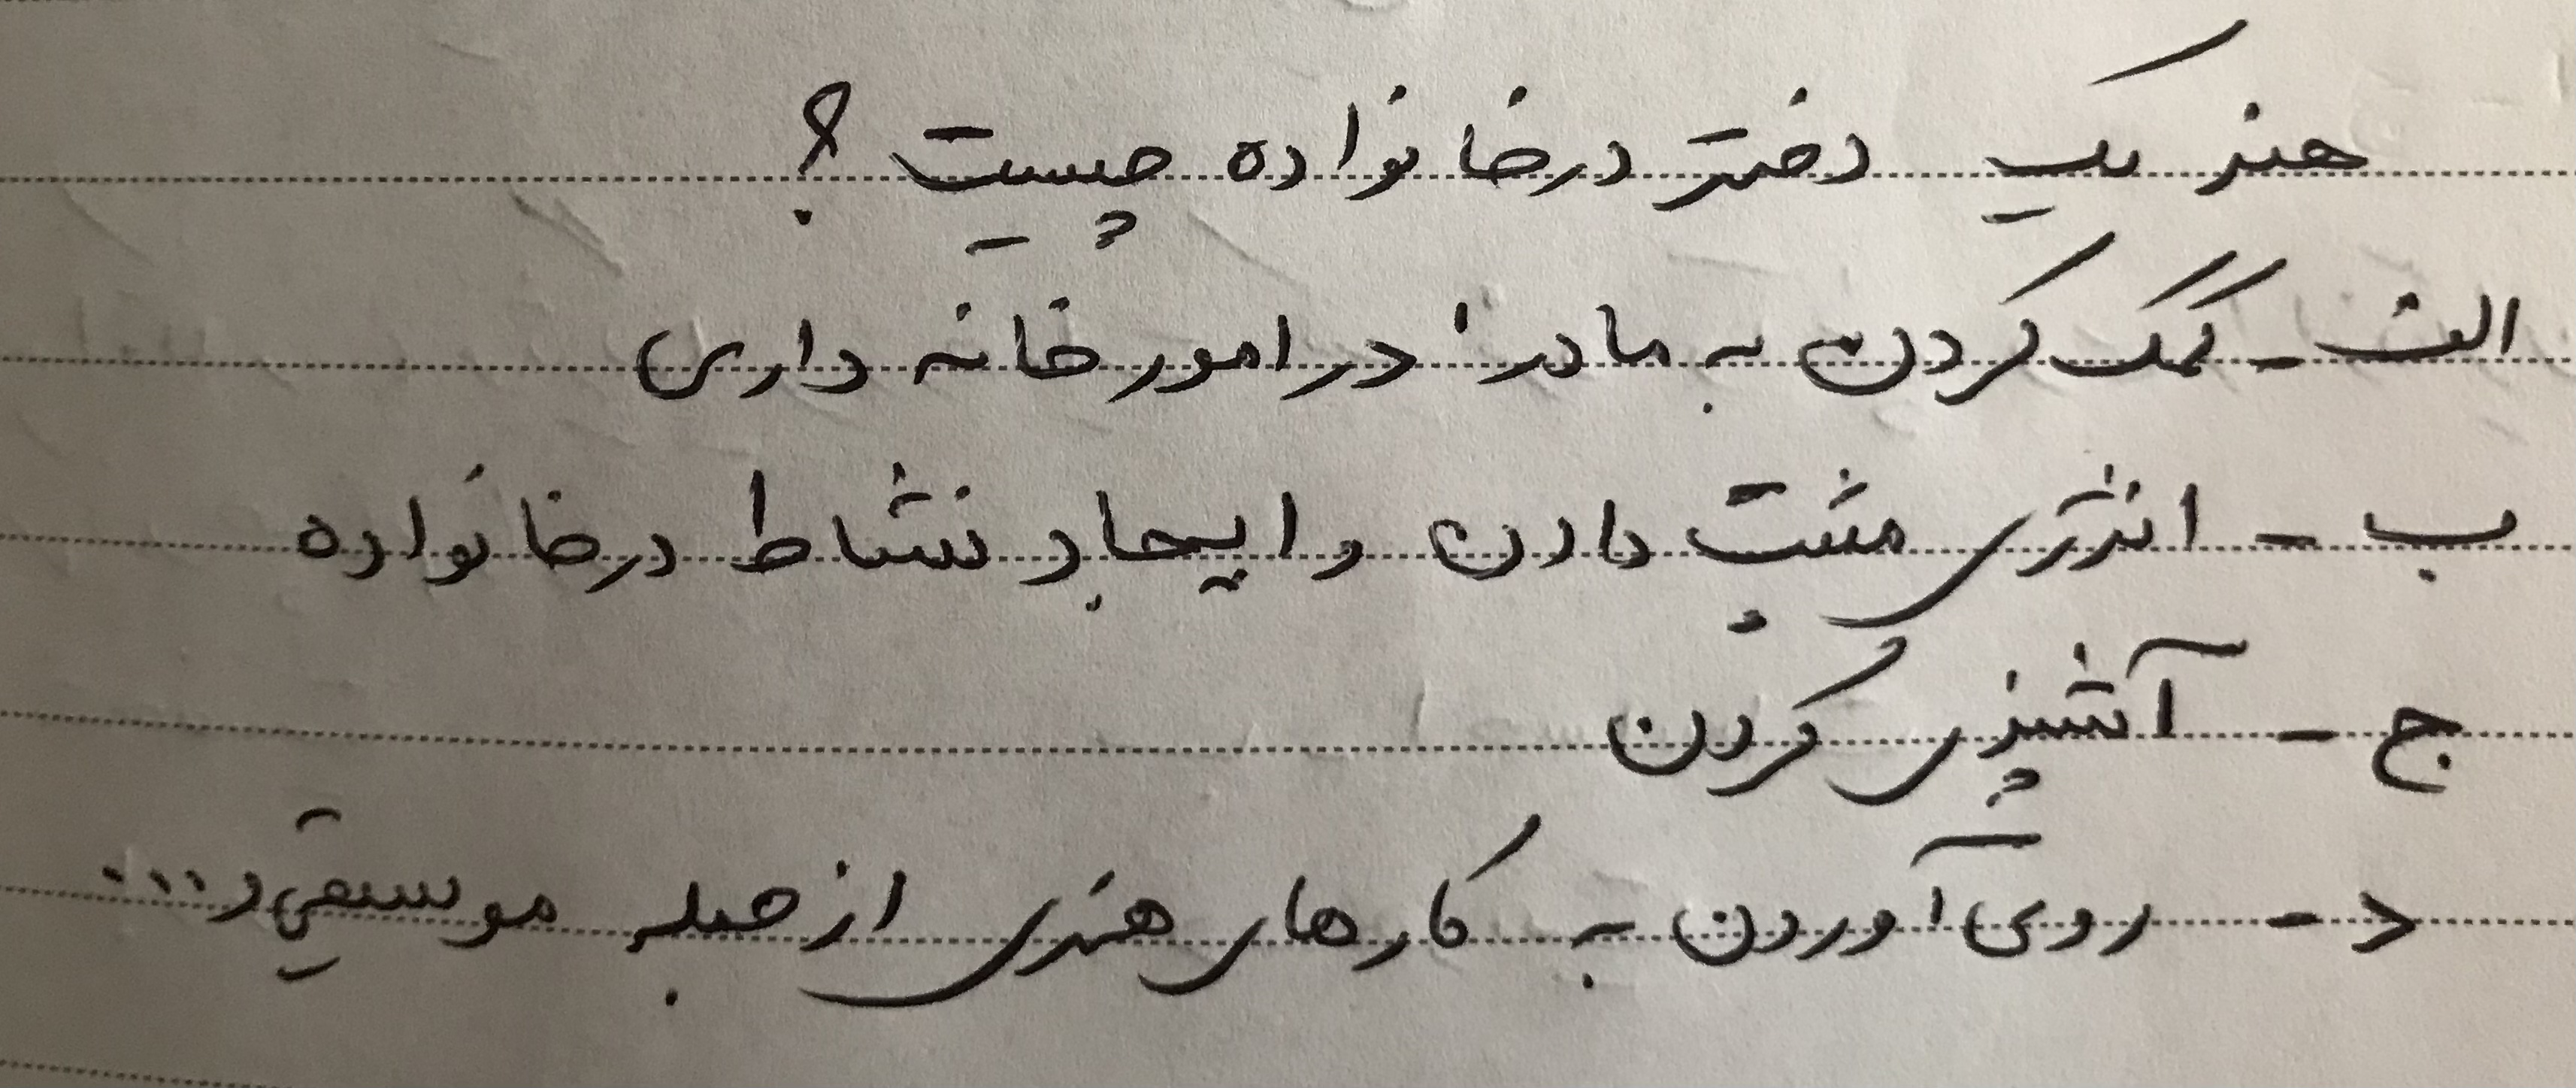 هنر یک دختر در خانواده چیست ؟
الف - کمک کردن به مادر در امور خانه داری
ب - انرژی مثبت دادن و ایجاد نشاط در خانواده
ج - آشپزی کردن
د - روی آوردن به کارهای هنری از جمله موسیقی و ...